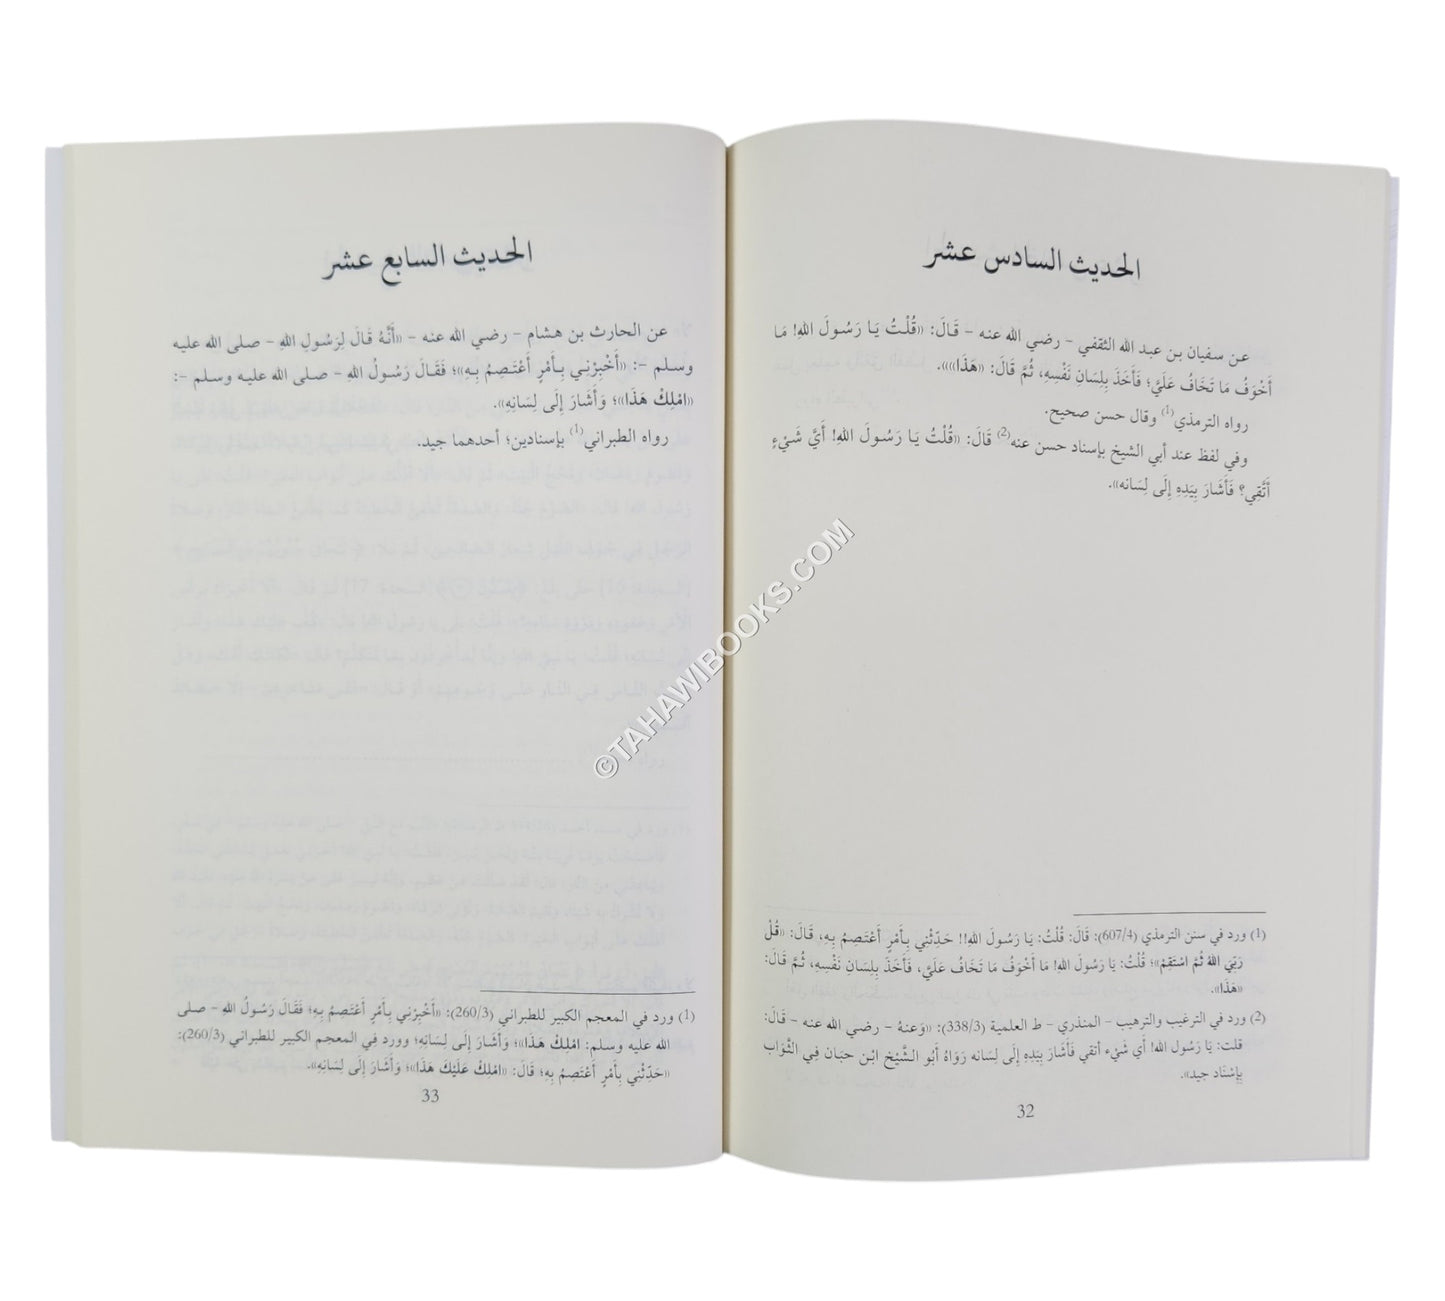 الحديث السادس عشر
عن سفيان بن عبد الله الثقفي - رضي الله عنه - قَالَ: «قُلْتُ يَا رَسُولَ اللهِ! مَا
أَخْوَفُ مَا تَخَافُ عَلَيَّ؛ فَأَخَذَ بِلِسَانِ نَفْسِهِ، ثُمَّ قَالَ: «هَذَا»».
رواه الترمذي(1) وقال حسن صحيح.
وفي لفظ عند أبي الشيخ بإسناد حسن عنه(2) قَالَ: «قُلْتُ يَا رَسُولَ اللهِ! أَيَّ شَيْءٍ
أَتَّقِي؟ فَأَشَارَ بِيَدِهِ إِلَى لِسَانه».
(1) ورد في سنن الترمذي (607/4): قَالَ: قُلْتُ: يَا رَسُولَ اللهِ!! حَدِّثْنِي بِأَمْرٍ أَعْتَصِمُ بِهِ، قَالَ: «قُلْ
رَبِّيَ اللهُ ثُمَّ اسْتَقِمْ»؛ قُلْتُ: يَا رَسُولَ اللهِ! مَا أَخْوَفُ مَا تَخَافُ عَلَيَّ، فَأَخَذَ بِلِسَانِ نَفْسِهِ، ثُمَّ قَالَ:
«هَذَا».
(2) ورد في الترغيب والترهيب - المنذري - ط العلمية (338/3): «وَعنهُ - رضي الله عنه - قَالَ:
قلت: يَا رَسُولَ الله! أي شَيْء أتقي فَأَشَارَ بِيَدِهِ إِلَى لِسَانه رَوَاهُ أَبُو الشَّيْخ ابْن حبَان فِي الثَّوَاب
بِإِسْنَاد جيد».
32
الحديث السابع عشر
عن الحارث بن هشام - رضي الله عنه - «أَنَّهُ قَالَ لِرَسُولِ اللهِ - صلى الله عليه
وسلم -: «أَخْبِرْنِي بِأَمْرٍ أَعْتَصِمُ بِهِ»؛ فَقَالَ رَسُولُ اللهِ - صلى الله عليه وسلم -:
«امْلِكْ هَذَا»؛ وَأَشَارَ إِلَى لِسَانِهِ».
رواه الطبراني(1) بإسنادين؛ أحدهما جيد.
(1) ورد في المعجم الكبير للطبراني (260/3): «أَخْبِرْنِي بِأَمْرٍ أَعْتَصِمُ بِهِ؛ فَقَالَ رَسُولُ اللهِ - صلى
الله عليه وسلم: امْلِكْ هَذَا»؛ وَأَشَارَ إِلَى لِسَانِهِ؛ وورد في المعجم الكبير للطبراني (260/3):
«حَدِّثْنِي بِأَمْرٍ أَعْتَصِمُ بِهِ؛ قَالَ: «امْلِكْ عَلَيْكَ هَذَا»؛ وَأَشَارَ إِلَى لِسَانِهِ».
33
©TAHAWIBOOKS.COM